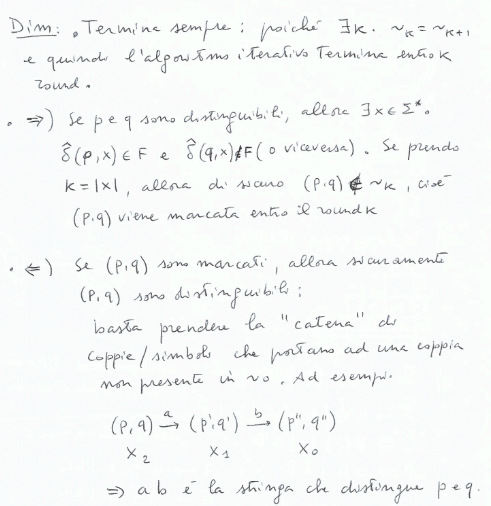 Dim: • Termina sempre: poiché ∃k. ~ₖ = ~ₖ₊₁
e quindi l'algoritmo iterativo termina entro k
round.
• ⇒) Se p e q sono distinguibili, allora ∃x ∈ Σ*.
δ̂(p,x) ∈ F e δ̂(q,x) ∉ F (o viceversa). Se prendo
k = |x|, allora di sicuro (p,q) ∉ ~ₖ, cioè
(p,q) viene marcata entro il round k
• ⇐) Se (p,q) sono marcati, allora sicuramente
(p,q) sono distinguibili:
basta prendere la "catena" di
coppie/simboli che portano ad una coppia
non presente in ~₀. Ad esempio.
(p,q) →ᵃ (p',q') →ᵇ (p'',q'')
X₂ X₁ X₀
⇒ ab è la stringa che distingue p e q.